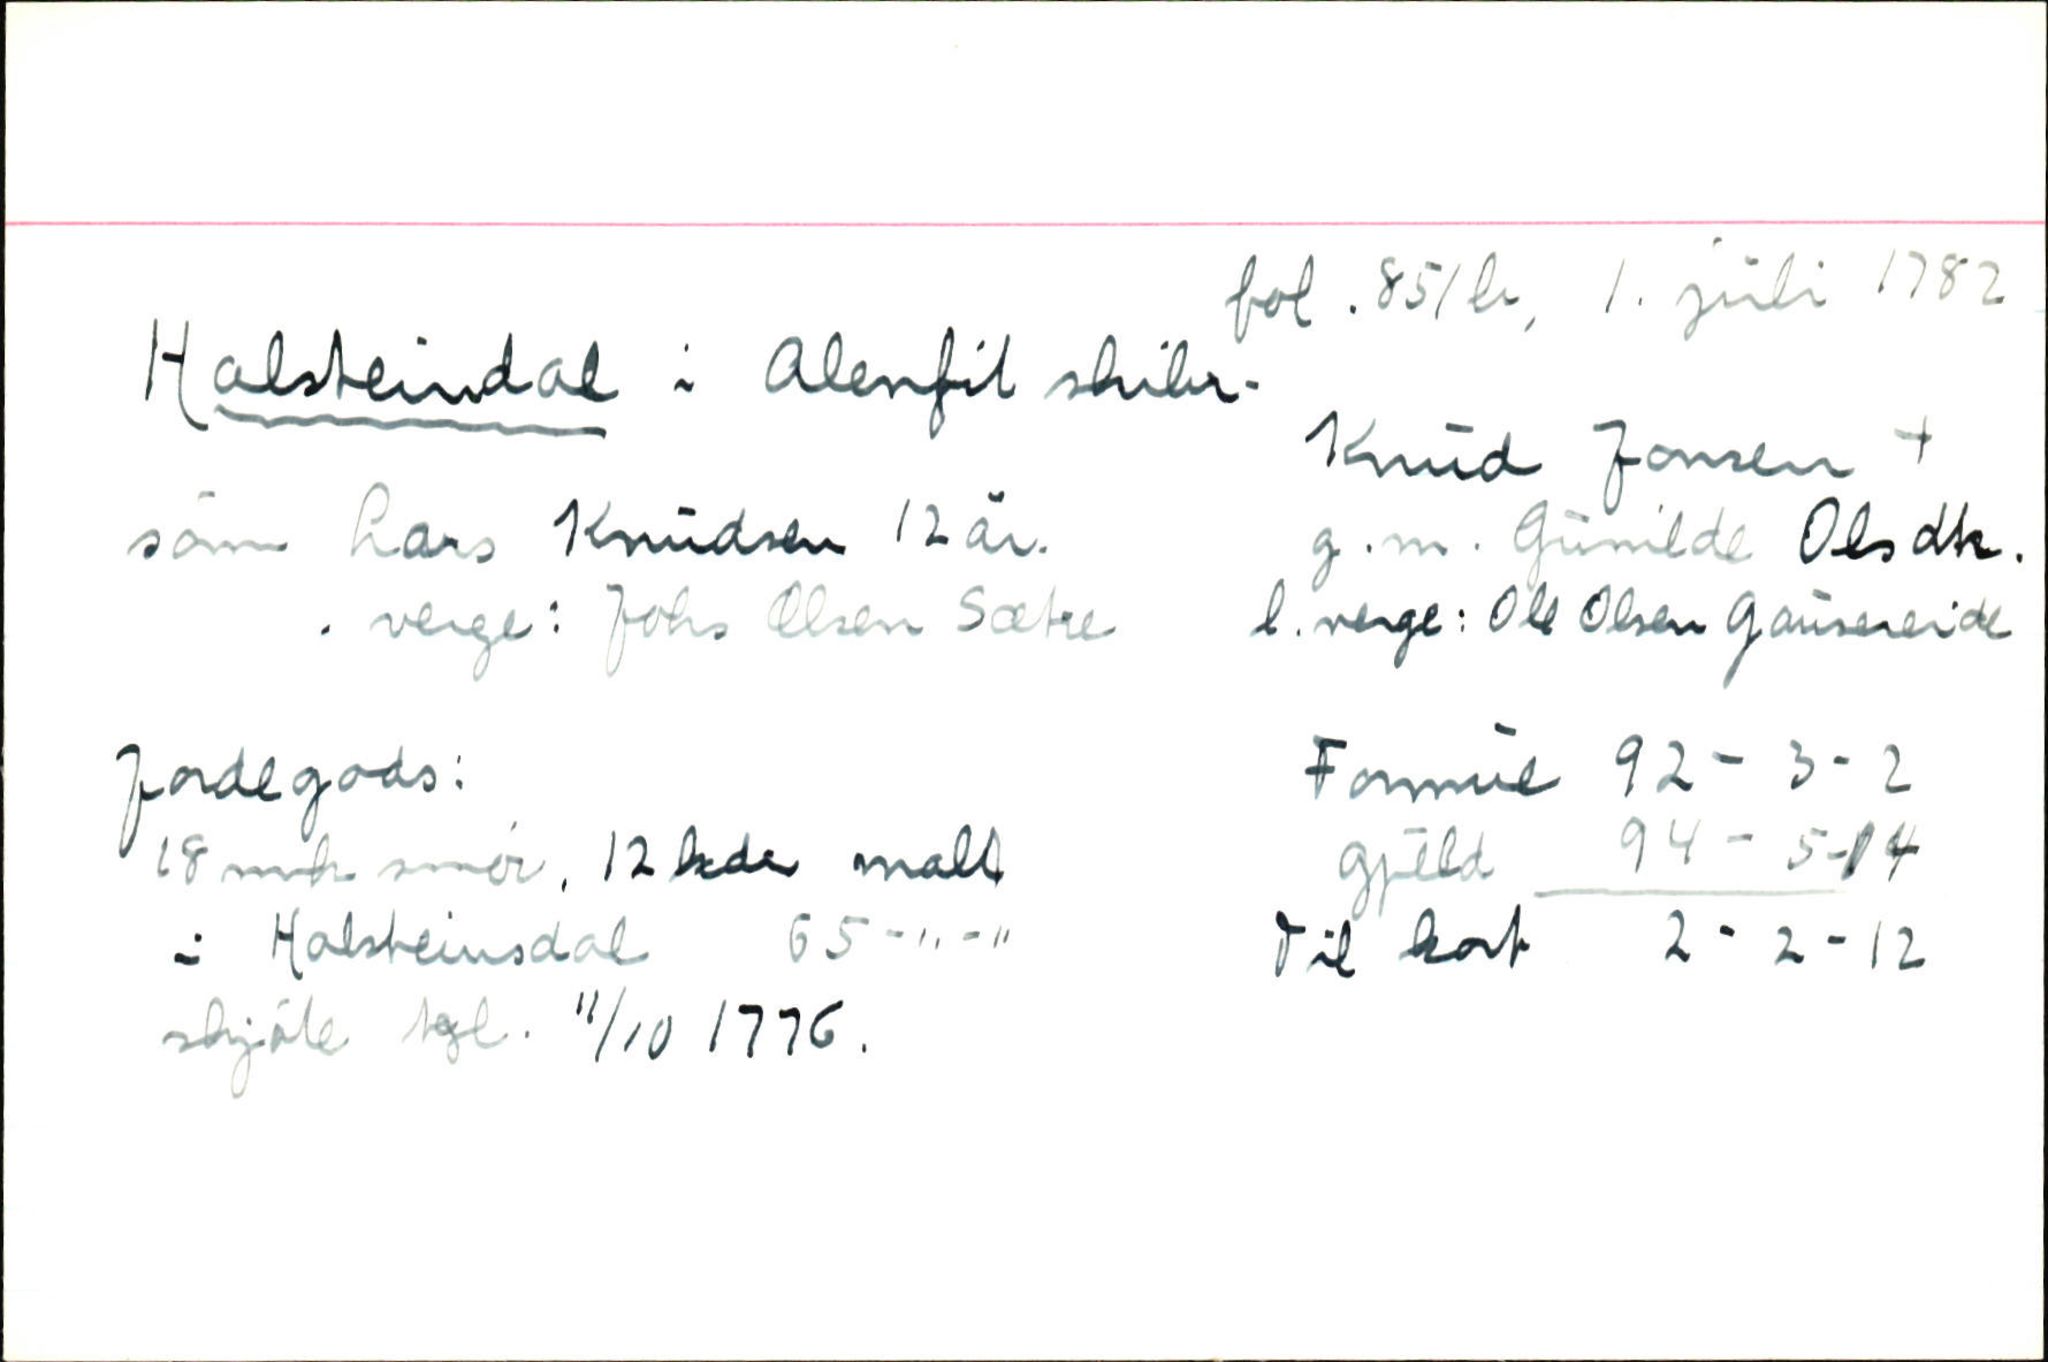 fol. 851b, 1. juli 1782
Halsteindal i Alenfit skibr.
Knud Jonsen +
sönn Lars Knudsen 12 år.
g.m. Gunilde Olsdtr.
verge: Johs Olsen Sætre
l. verge: Ole Olsen Gausereide
Jordegods:
Formue 92 - 3 - 2
18 mrk smör, 12 kder malt
Gjeld 94 - 5 - 14
i Halsteinsdal 65 - " - "
Til kort 2 - 2 - 12
skjöte tgl. 11/10 1776.